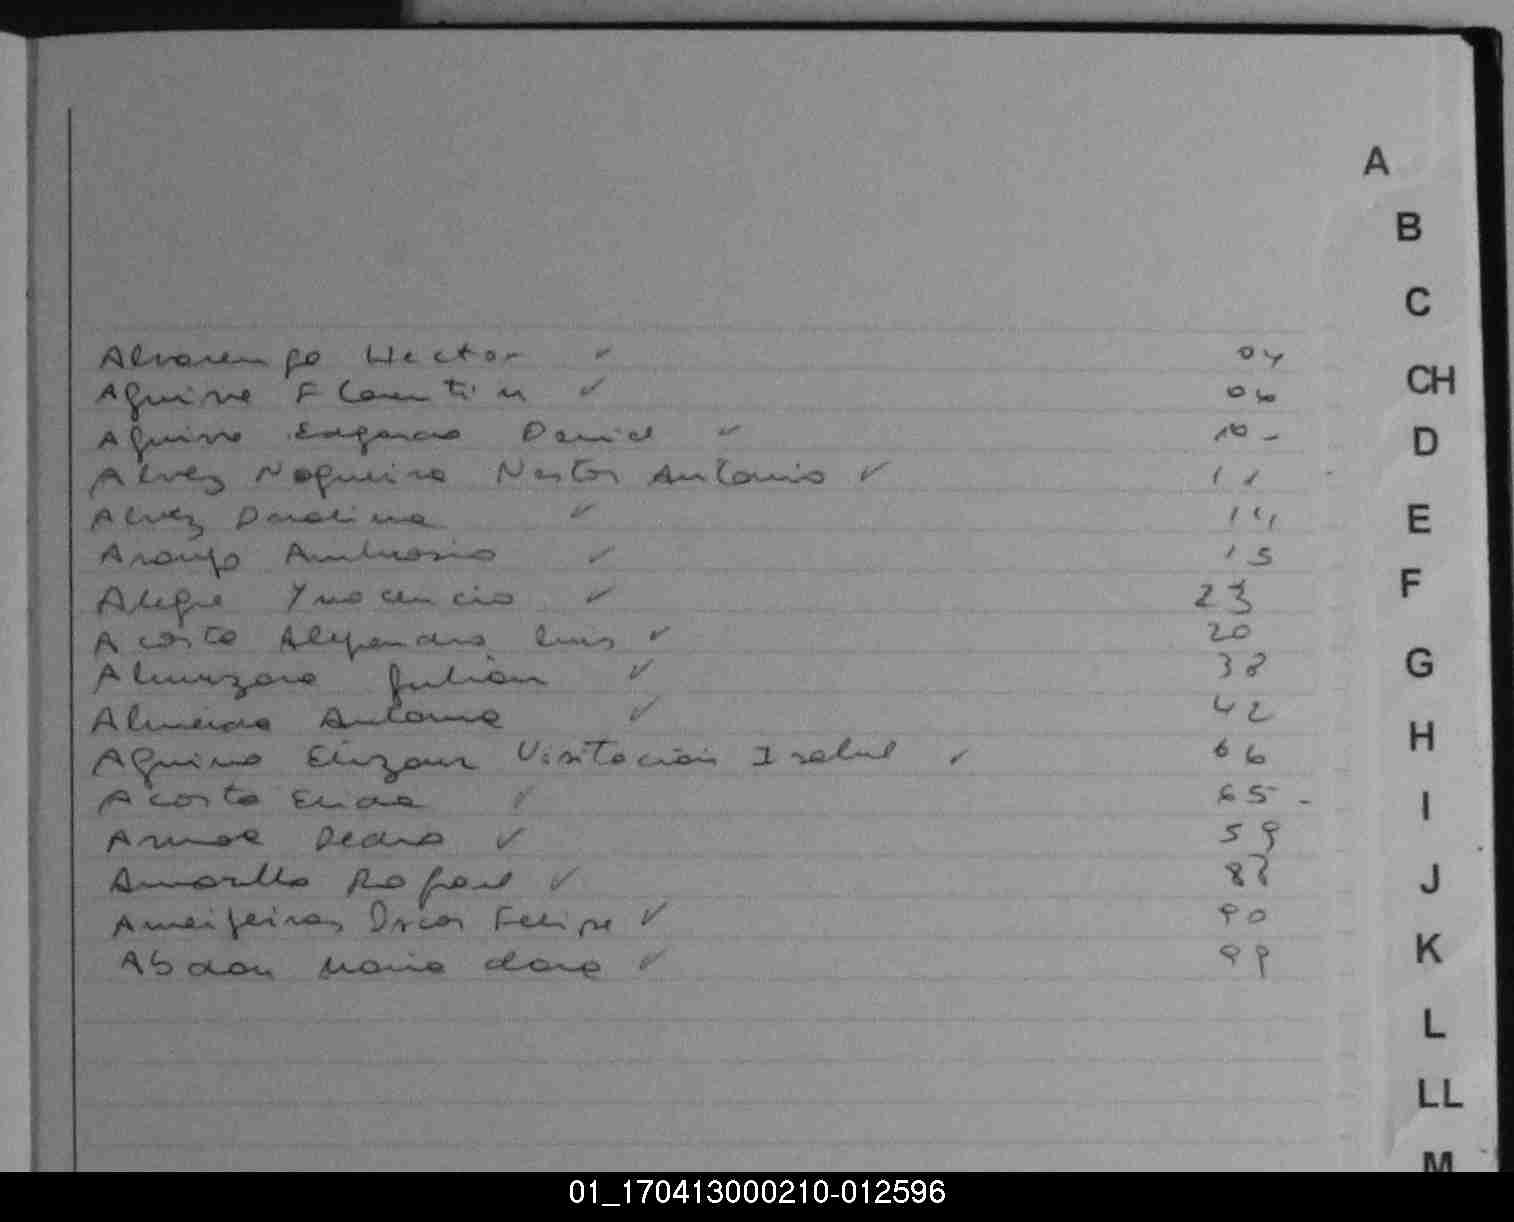 Alvarenga Hector ✓ 04
Aguirre Florentin ✓ 06
Aguirre Edgardo Daniel ✓ 10 -
Alvez Nogueira Nestor Antonio ✓ 11
Alvez ✓ 14
Araujo Ambrosio ✓ 15
Alegre Ynocencio ✓ 23
Acosta Alejandro Luis ✓ 20
Julian ✓ 38
Almeida Antonia ✓ 42
Aquino Visitacion Isabel ✓ 66
Acosta Elida ✓ 65 -
Armoa Pedro ✓ 59
Amarilla Rafael ✓ 88
Ameijeiras Oscar Felipe ✓ 90
Abdon Maria Clara ✓ 99
A
B
C
CH
D
E
F
G
H
I
J
K
L
LL
M
01_170413000210-012596